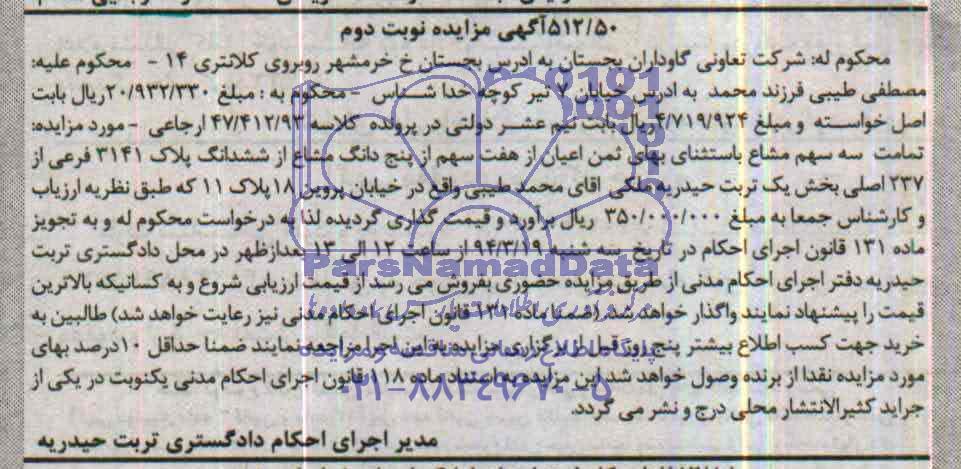 ۵۱۲/۵۰آگهی مزایده نوبت دوم
محکوم له: شرکت تعاونی گاوداران بجستان به ادرس بجستان خ خرمشهر روبروی کلانتری ۱۴ - محکوم علیه:
مصطفی طیبی فرزند محمد به ادرس خیابان ۷ تیر کوچه خدا شناس - محکوم به : مبلغ ۲۰/۹۳۲/۳۳۰ریال بابت
اصل خواسته و مبلغ ۴/۷۱۹/۹۲۴ریال بابت نیم عشر دولتی در پرونده کلاسه ۴۷/۴۱۲/۹۳ ارجاعی - مورد مزایده:
تمامت سه سهم مشاع باستثنای بهای ثمن اعیان از هفت سهم از پنج دانگ مشاع از ششدانگ پلاک ۳۱۴۱ فرعی از
۲۳۷ اصلی بخش یک تربت حیدریه ملکی اقای محمد طیبی واقع در خیابان پروین ۱۸پلاک ۱۱ که طبق نظریه ارزیاب
و کارشناس جمعا به مبلغ ۳۵۰/۰۰۰/۰۰۰ ریال برآورد و قیمت گذاری گردیده لذا به درخواست محکوم له و به تجویز
ماده ۱۳۱ قانون اجرای احکام در تاریخ سه شنبه ۹۴/۳/۱۹ از ساعت ۱۲ الی ۱۳ بعدازظهر در محل دادگستری تربت
حیدریه دفتر اجرای احکام مدنی از طریق مزایده حضوری بفروش می رسد از قیمت ارزیابی شروع و به کسانیکه بالاترین
قیمت را پیشنهاد نمایند واگذار خواهد شد.(ضمنا ماده ۱۳۱ قانون اجرای احکام مدنی نیز رعایت خواهد شد) طالبین به
خرید جهت کسب اطلاع بیشتر پنج روز قبل از برگزاری مزایده به این اجرا مراجعه نمایند ضمنا حداقل ۱۰درصد بهای
مورد مزایده نقدا از برنده وصول خواهد شد این مزایده به استناد ماده ۱۱۸ قانون اجرای احکام مدنی یکنوبت در یکی از
جراید کثیرالانتشار محلی درج و نشر می گردد.
مدیر اجرای احکام دادگستری تربت حیدریه
ParsNamadData
۰۲۱-۸۸۳۴۹۶۷۰-۵